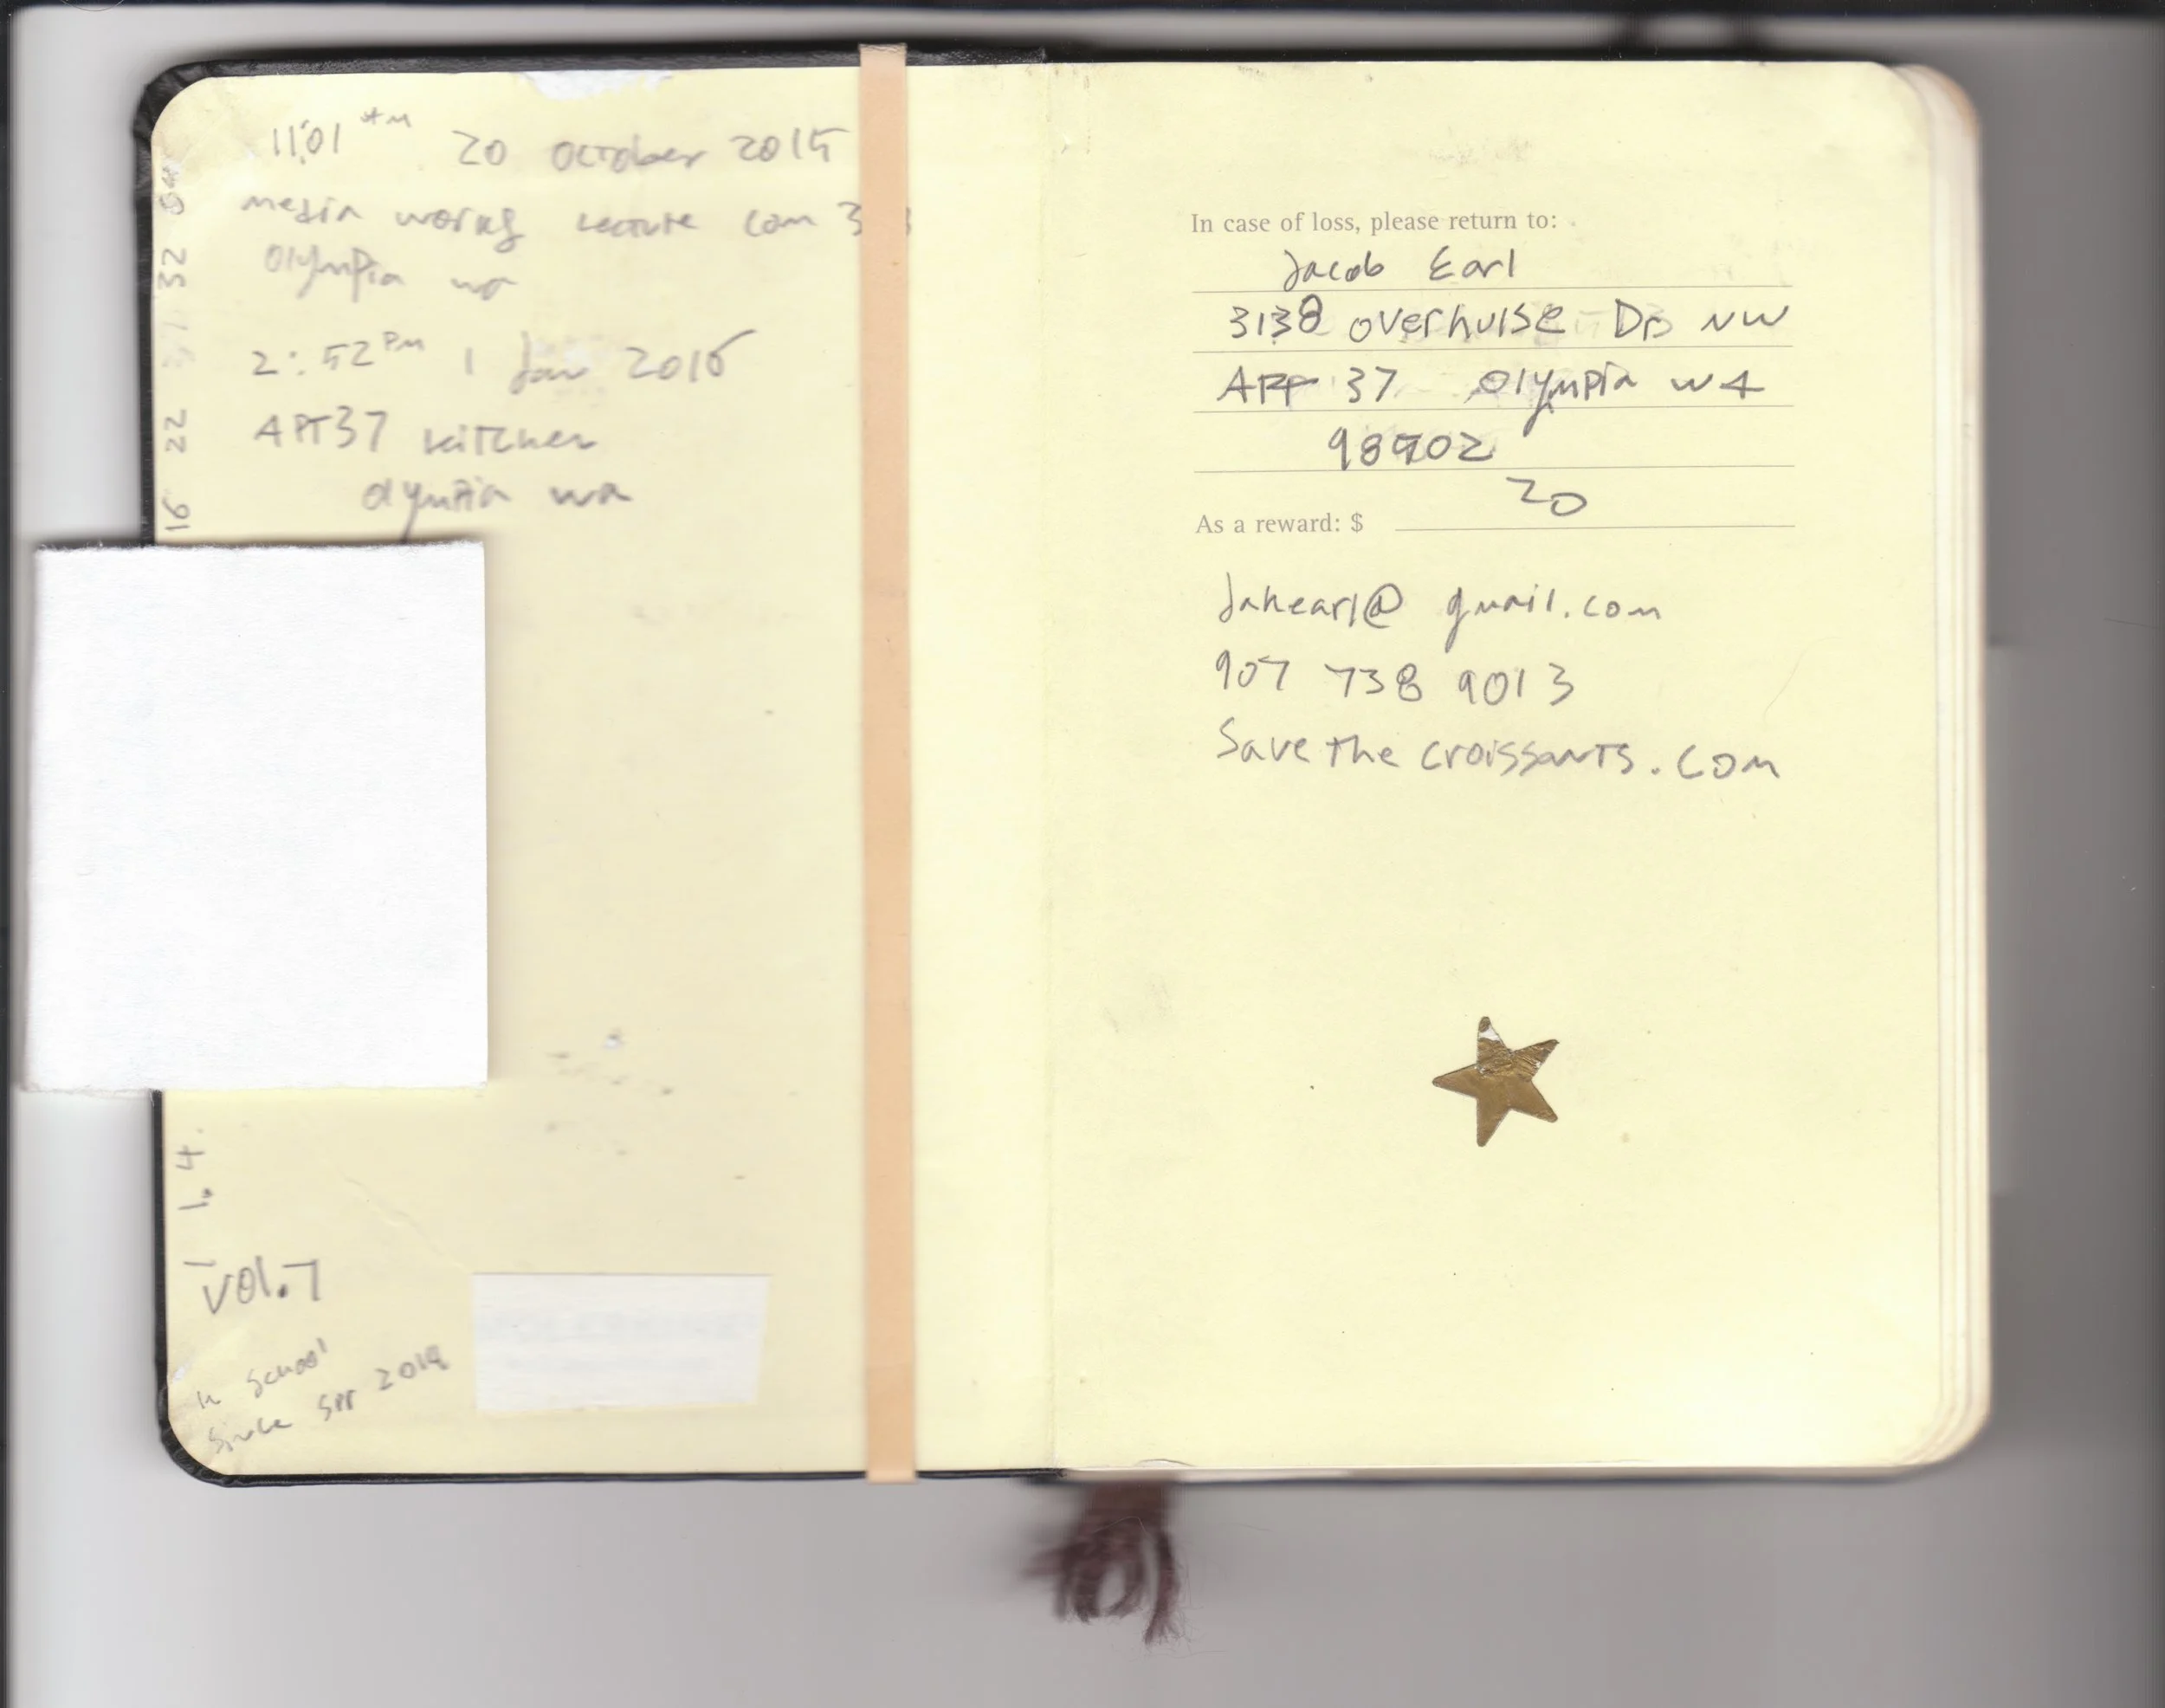 11:01 AM 20 October 2015
media works Lecture Com 3
Olympia wa
2:52 PM 1 Jan 2016
APT 37 kitchen
olympia wa
16 22 32
1 1. 4.
Vol. 7
in school
since spr 2014
In case of loss, please return to:
Jacob Earl
3138 overhulse Dr NW
APP 37 Olympia WA
98502
As a reward: $ 20
Jakearl@gmail.com
907 738 9013
Save the croissants.com